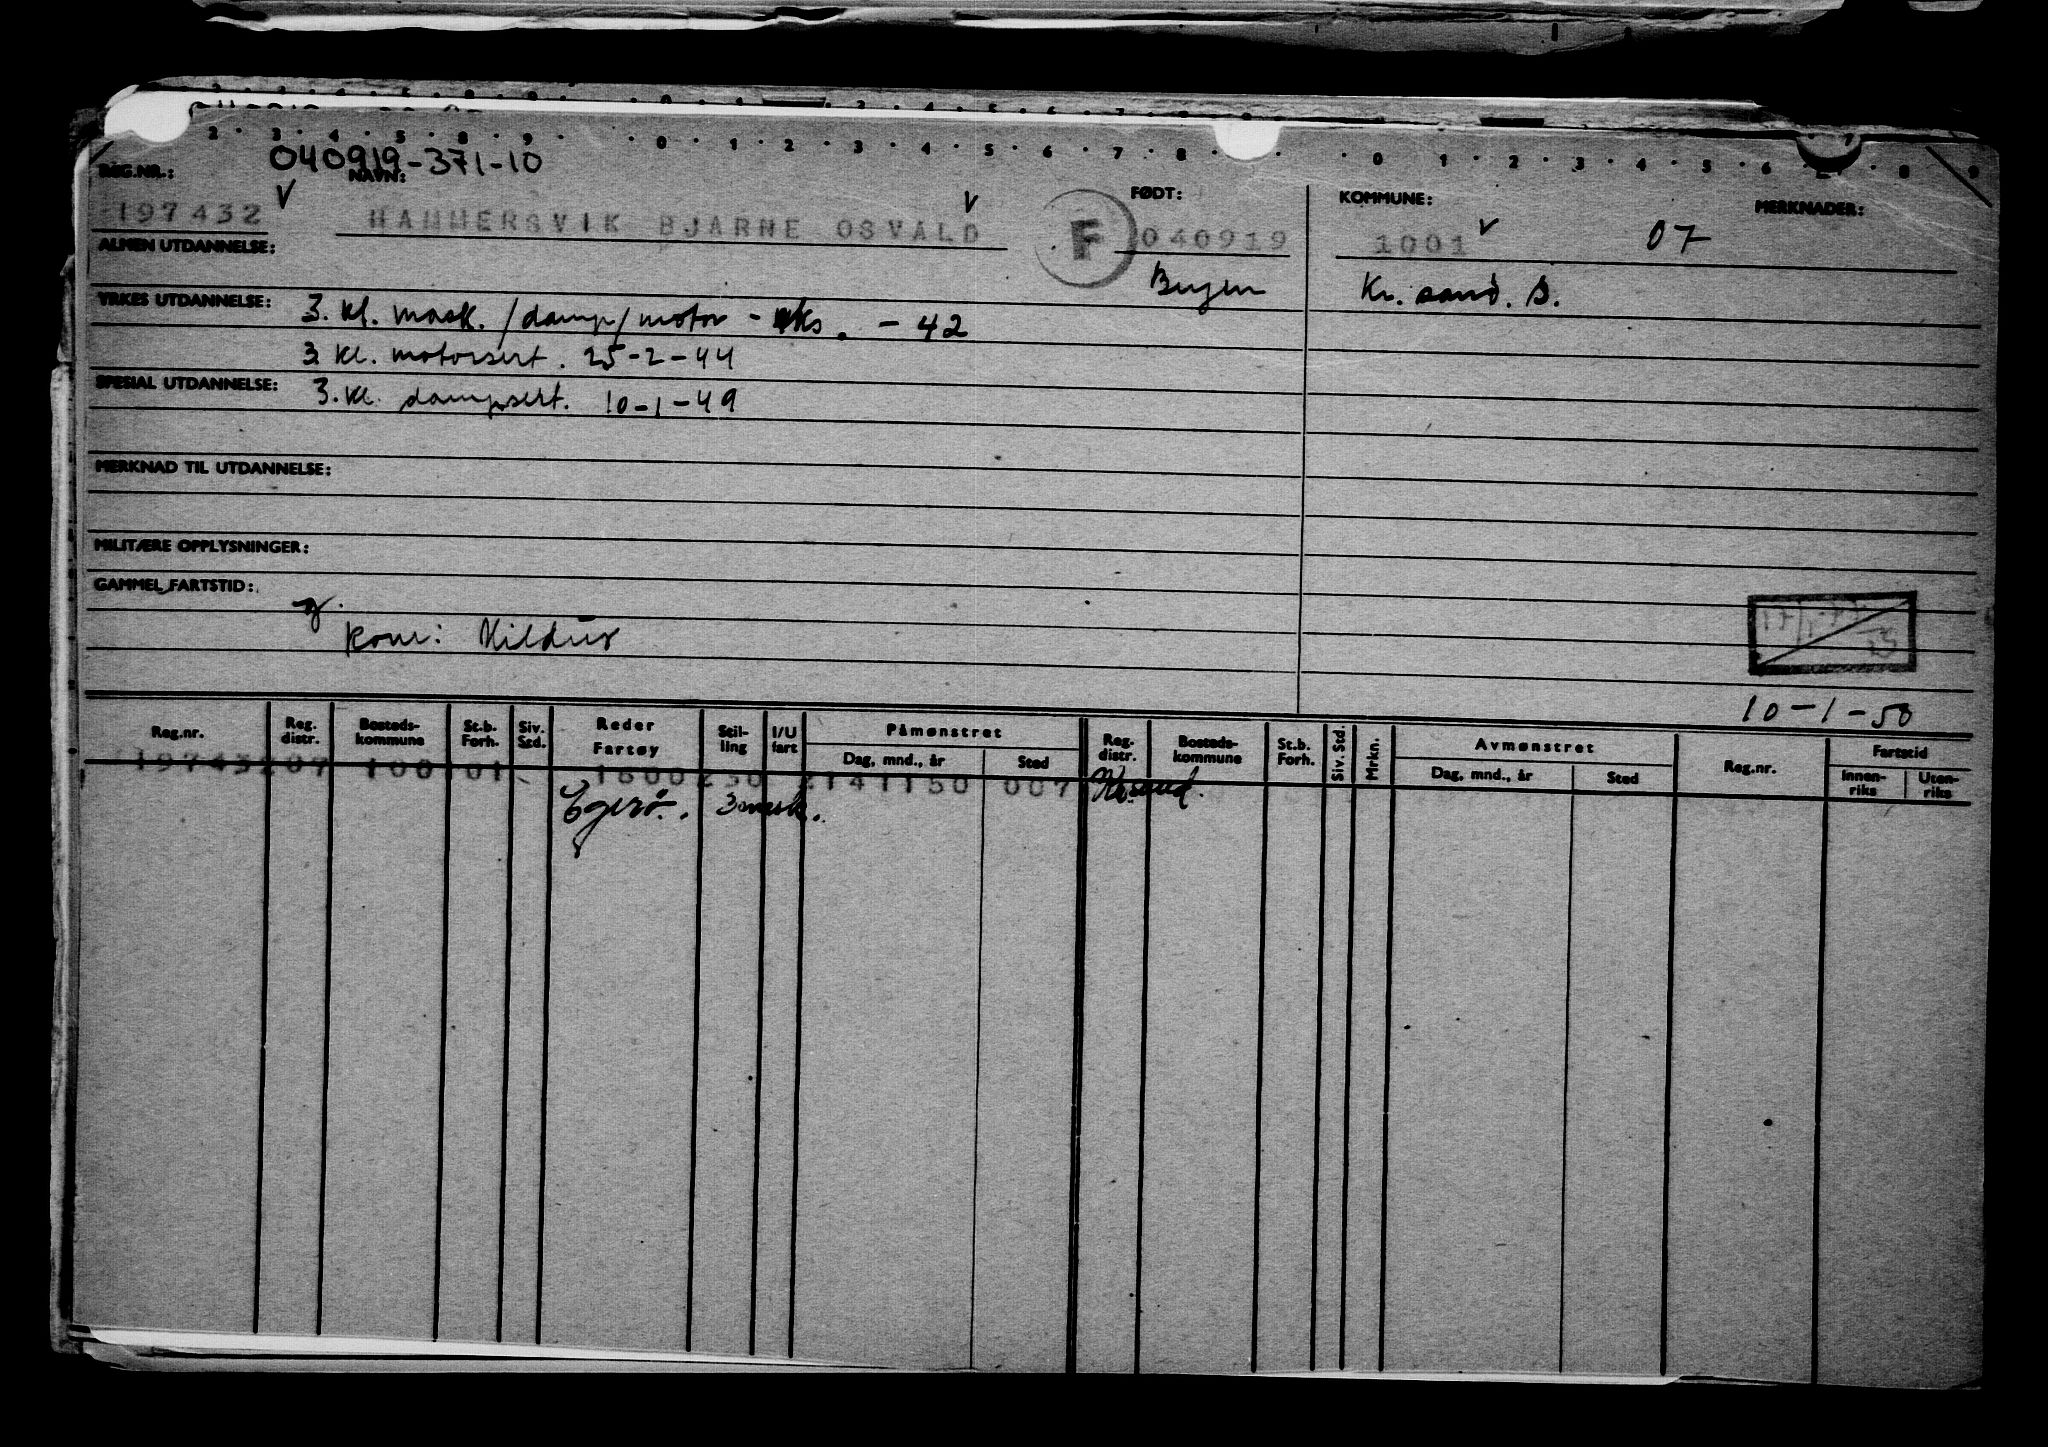 2 · 3 · 4 · 5 · 8 · 9 · · 0 · 1 · 2 · 3 · 4 · 5 · 6 · 7 · 8 · · · 0 · 1 · 2 · 3 · 4 · 5 · 6 · 8 · 9
040919-371-10
REG.NR.: NAVN: FØDT: KOMMUNE: MERKNADER:
197432 HAMMERSVIK BJARNE OSVALD F 040919 1001 07
ALMEN UTDANNELSE: Bergen Kr. sand. S.
YRKES UTDANNELSE: 3. kl. mask. /damp/motor - eks. - 42
3. kl. motorsert. 25-2-44
SPESIAL UTDANNELSE: 3. kl. dampsert. 10-1-49
MERKNAD TIL UTDANNELSE:
MILITÆRE OPPLYSNINGER:
GAMMEL FARTSTID:
g.
kone: Hildur
10-1-50
Reg.nr. Reg. distr. Bosteds-kommune St.b. Forh. Siv. Std. Reder Fartøy Stil-ling I/U fart Påmønstret Dag, mnd., år Sted Reg. distr. Bosteds-kommune St.b. Forh. Siv. Std. Mrkn. Avmønstret Dag, mnd., år Sted Reg.nr. Fartstid Innen-riks Uten-riks
197432 07 100101 1800230 2141150 007 Kr.sand.
Egerö. 3 mask.